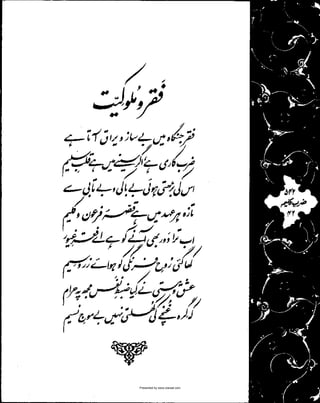 فقر و ملوکیت
فقر جنگاہ میں بے ساز و یراق آتا ہے
ضرب کاری ہے اگر سینے میں ہے قلب سلیم
اس کی بڑھتی ہوئی بے باکی و بے تابی سے
تازہ ہر عہد میں ہے قصۂ فرعون و کلیم
اب ترا دور بھی آنے کو ہے اے فقر غیور
کھا گئی روح فرنگی کو ہوائے زر و سیم
عشق و مستی نے کیا ضبط نفس مجھ پہ حرام
کہ گرہ غنچے کی کھلتی نہیں بے موج نسیم
ضرب کلیم
۴۲
Presented by